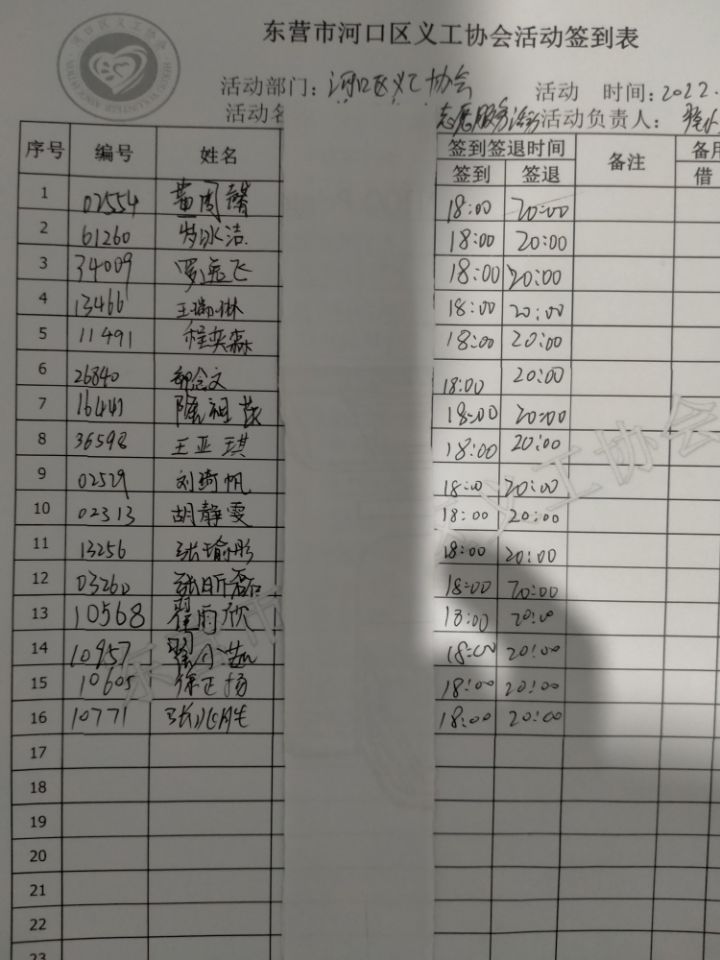 东营市河口区义工协会活动签到表
活动部门：河口区义工协会 活动 时间：2022.
活动名 志愿服务活动 活动负责人：
序号 编号 姓名 签到签退时间 备注 备用
签到 签退 借
1 02554 黄周馨 18:00 20:00
2 61260 冰洁 18:00 20:00
3 34009 罗逸飞 18:00 20:00
4 13466 王瑞琳 18:00 20:00
5 11491 程奕森 18:00 20:00
6 26840 郭念文 18:00 20:00
7 16441 陈祖 18:00 20:00
8 36598 王亚琪 18:00 20:00
9 02529 刘琦帆 18:00 20:00
10 02313 胡静雯 18:00 20:00
11 13256 张瑜彤 18:00 20:00
12 03260 张昕磊 18:00 20:00
13 10568 翟雨欣 18:00 20:00
14 10957 18:00 20:00
15 10605 徐正扬 18:00 20:00
16 10771 张 18:00 20:00
17
18
19
20
21
22
23